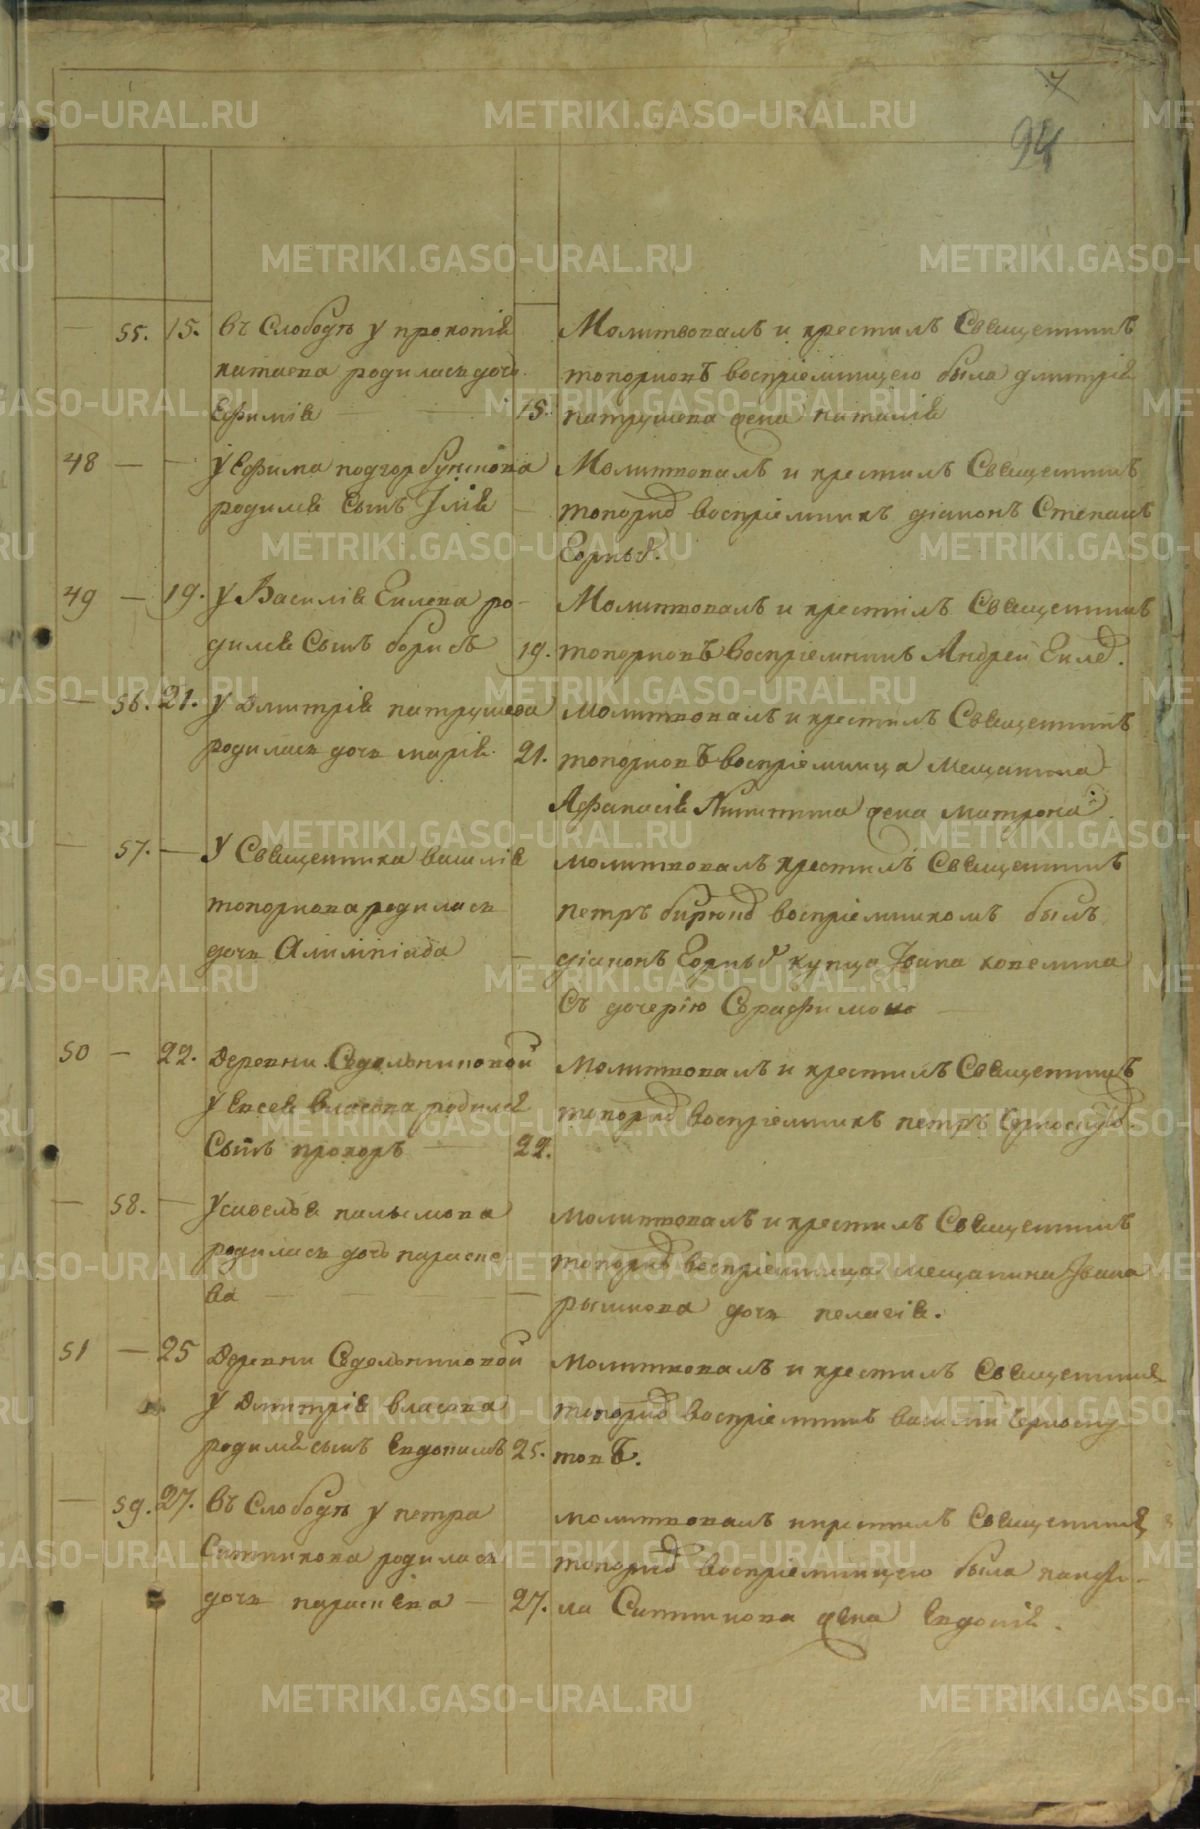 7
94
55. 15. въ Слободѣ у прокопія
катаева родилась дочь
Ефимія
Молитвовалъ и крестилъ Священникъ
топорковъ воспріемницею была дмитрія
15. патрушева жена наталія
48 — — у Ефима подгорбунскова
родился Сынъ Илія
Молитвовалъ и крестилъ Священникъ
топорков воспріемникъ діаконъ Стефанъ
49 — 19. у Василія Еилева ро-
дился Сынъ борисъ
Молитвовалъ и крестилъ Священникъ
19. топорковъ воспріемникъ Андрей Еилев.
— 56. 21. у Дмитрія патрушева
родилась дочь марія.
Молитвовалъ и крестилъ Священникъ
21. топорковъ воспріемница мещанина
Афанасія Никитина жена матрона
— 57. — У Священника василія
топоркова родилась
дочь Алимпіада
молитвовалъ крестилъ Священникъ
петръ бирюков воспріемникомъ былъ
діаконъ купца Іоана
Съ дочерію Серафимою
50 — 22. Деревни Седельниковой
у Евсея власова родился
Сынъ прохоръ
Молитвовалъ и крестилъ Священникъ
топорков воспріемникъ петръ Черноскутов.
22.
— 58. — У савелья
родилась дочь параске
ва
молитвовалъ и крестилъ Священникъ
топорков воспріемница мещанина Іоана
рышкова дочь пелагія.
51 — 25 Деревни Седельниковой
у Дмитрія власова
родился сынъ Евдокимъ
молитвовалъ и крестилъ Священникъ
топорков воспріемникъ василій Черноску
25. товъ.
— 59. 27. въ Слободѣ у петра
Ситникова родилась
дочь параскева
молитвовалъ и крестилъ Священникъ
топорков воспріемницею была памфи-
27. ла Ситникова жена Евдокія.
METRIKI.GASO-URAL.RU